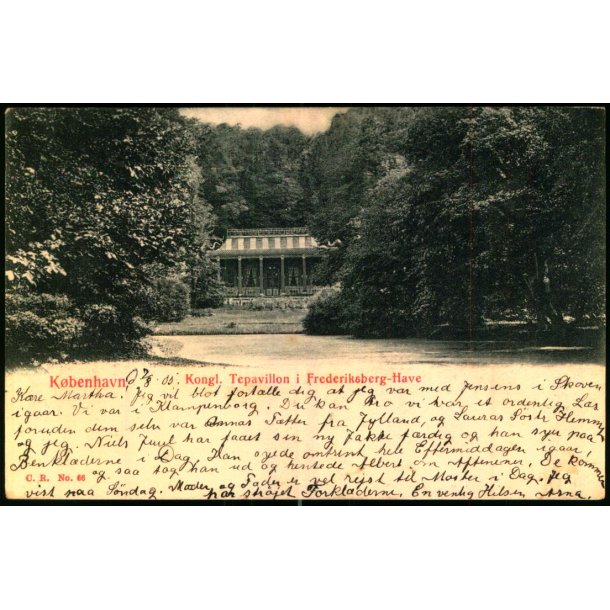 København, d 7/8 00. Kongl. Tepavillon i Frederiksberg-Have
Kære Martha. Jeg vil blot fortælle dig, at jeg var med Jensens i Skoven
igaar. Vi var i Klampenborg. Du kan tro vi var et ordenlig Læs
foruden dem selv var Annas Søster fra Jylland, og Lauras Søster Flemming
og jeg. Niels Juul har faaet sin ny Jakke færdig og han syer paa
Benklæderne i Dag. Han syede omtrent hele Eftermiddagen igaar,
og saa tog han ud og hentede Albert om Aftenen. De kommer
C. R. No. 66
vist paa Søndag. Moder og Fader er vel rejst til Moster i Dag. Jeg
har Forklæderne. En venlig Hilsen Anna.